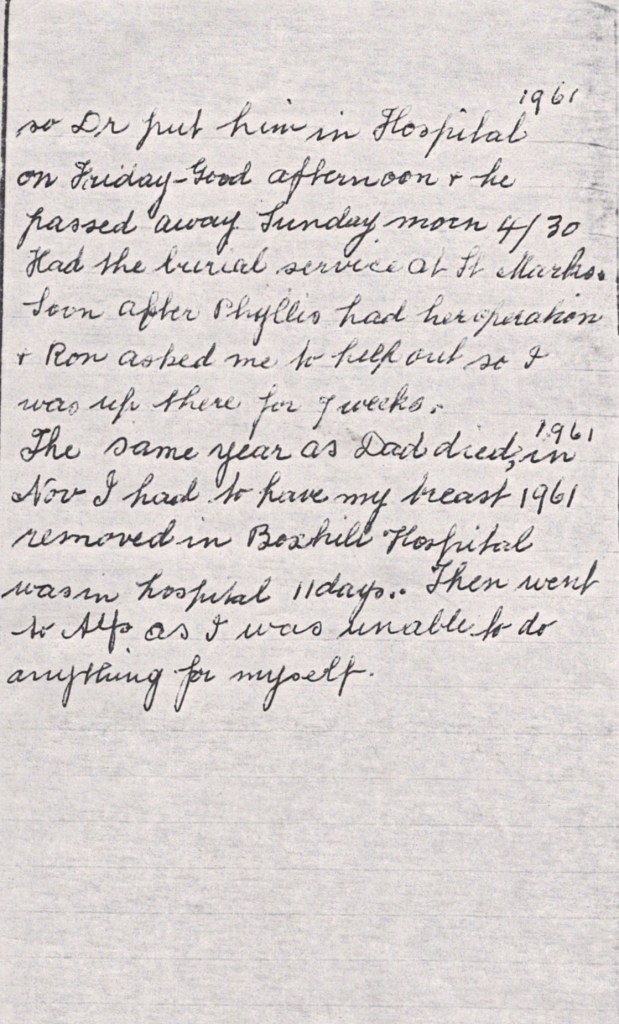 1961
so Dr put him in Hospital
on Friday-Good afternoon + he
passed away Sunday morn 4/30
Had the burial service at St Marks.
Soon after Phyllis had her operation
+ Ron asked me to help out so I
was up there for 7 weeks.
The same year as Dad died, in 1961
Nov I had to have my breast 1961
removed in Boxhill Hospital
was in hospital 11 days.. Then went
to Alfs as I was unable to do
anything for myself.